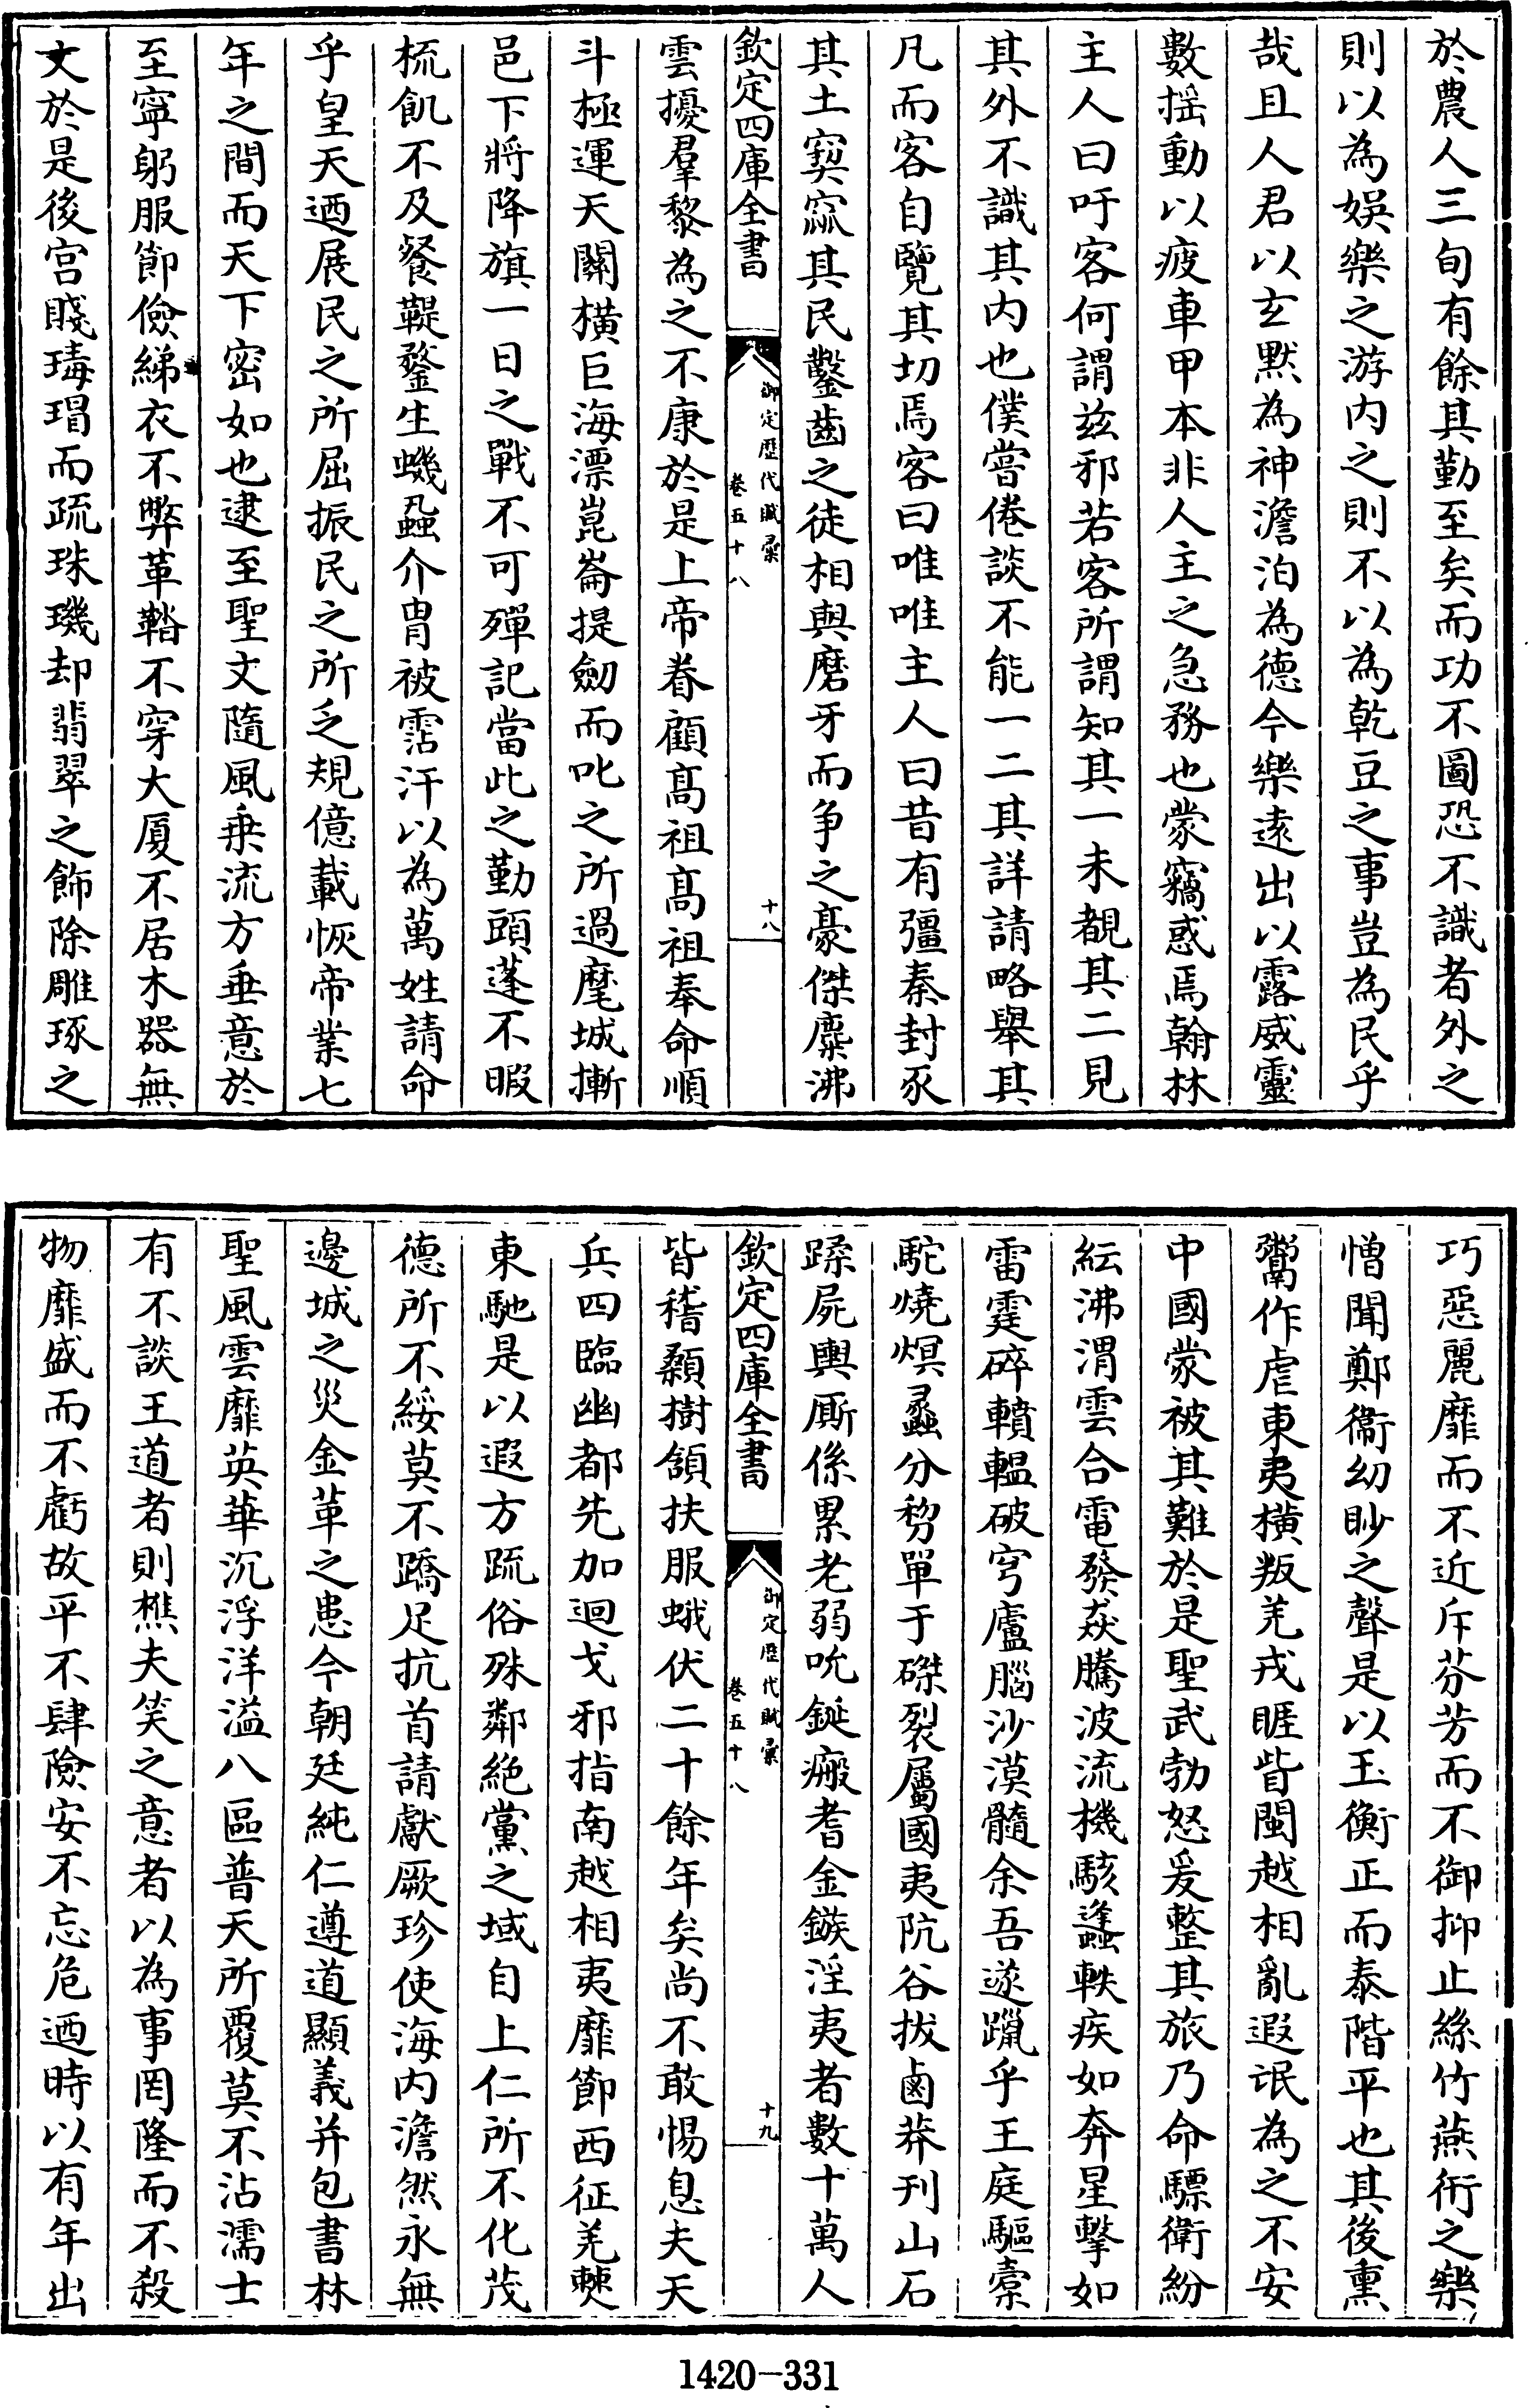 於農人三旬有餘其勤至矣而功不圖恐不識者外之
則以為娛樂之游内之則不以為乾豆之事豈為民乎
哉且人君以玄默為神澹泊為德今樂遠出以露威靈
數揺動以疲車甲本非人主之急務也蒙竊惑焉翰林
主人曰吁客何謂兹邪若客所謂知其一未覩其二見
其外不識其内也僕嘗倦談不能一二其詳請略舉其
凡而客自覽其切焉客曰唯唯主人曰昔有彊秦封豕
其土窫窳其民鑿齒之徒相與磨牙而争之豪傑麋沸
欽定四庫全書
御定歴代賦彚
卷五十八
十八
雲擾羣黎為之不康於是上帝眷顧髙祖髙祖奉命順
斗極運天關横巨海漂崑崙提劒而叱之所過麾城摲
邑下將降旗一日之戰不可殫記當此之勤頭蓬不暇
梳飢不及餐鞮鍪生蟣蝨介胄被霑汗以為萬姓請命
乎皇天迺展民之所屈振民之所乏規億載恢帝業七
年之間而天下密如也逮至聖文隨風乗流方垂意於
至寧躬服節儉綈衣不弊革鞜不穿大厦不居木器無
文於是後宫賤瑇瑁而疏珠璣却翡翠之飾除雕琢之
巧惡麗靡而不近斥芬芳而不御抑止絲竹燕衎之樂
憎聞鄭衞幼眇之聲是以玉衡正而泰階平也其後熏
鬻作虐東夷横叛羌戎睚眥閩越相亂遐氓為之不安
中國蒙被其難於是聖武勃怒爰整其旅乃命驃衛紛
紜沸渭雲合電發猋騰波流機駭蠭軼疾如奔星擊如
雷霆碎轒輼破穹廬腦沙漠髓余吾遂躐乎王庭驅橐
駝燒熐蠡分剓單于磔裂屬國夷阬谷拔鹵莽刋山石
蹂屍輿厮係累老弱吮鋋瘢耆金鏃淫夷者數十萬人
欽定四庫全書
御定歴代賦彚
卷五十八
十九
皆稽顙樹頷扶服蛾伏二十餘年矣尚不敢惕息夫天
兵四臨幽都先加迴戈邪指南越相夷靡節西征羌僰
東馳是以遐方疏俗殊鄰絶黨之域自上仁所不化茂
德所不綏莫不蹻足抗首請獻厥珍使海内澹然永無
邊城之災金革之患今朝廷純仁遵道顯義并包書林
聖風雲靡英華沉浮洋溢八區普天所覆莫不沾濡士
有不談王道者則樵夫笑之意者以為事罔隆而不殺
物靡盛而不虧故平不肆險安不忘危迺時以有年出
1420-331